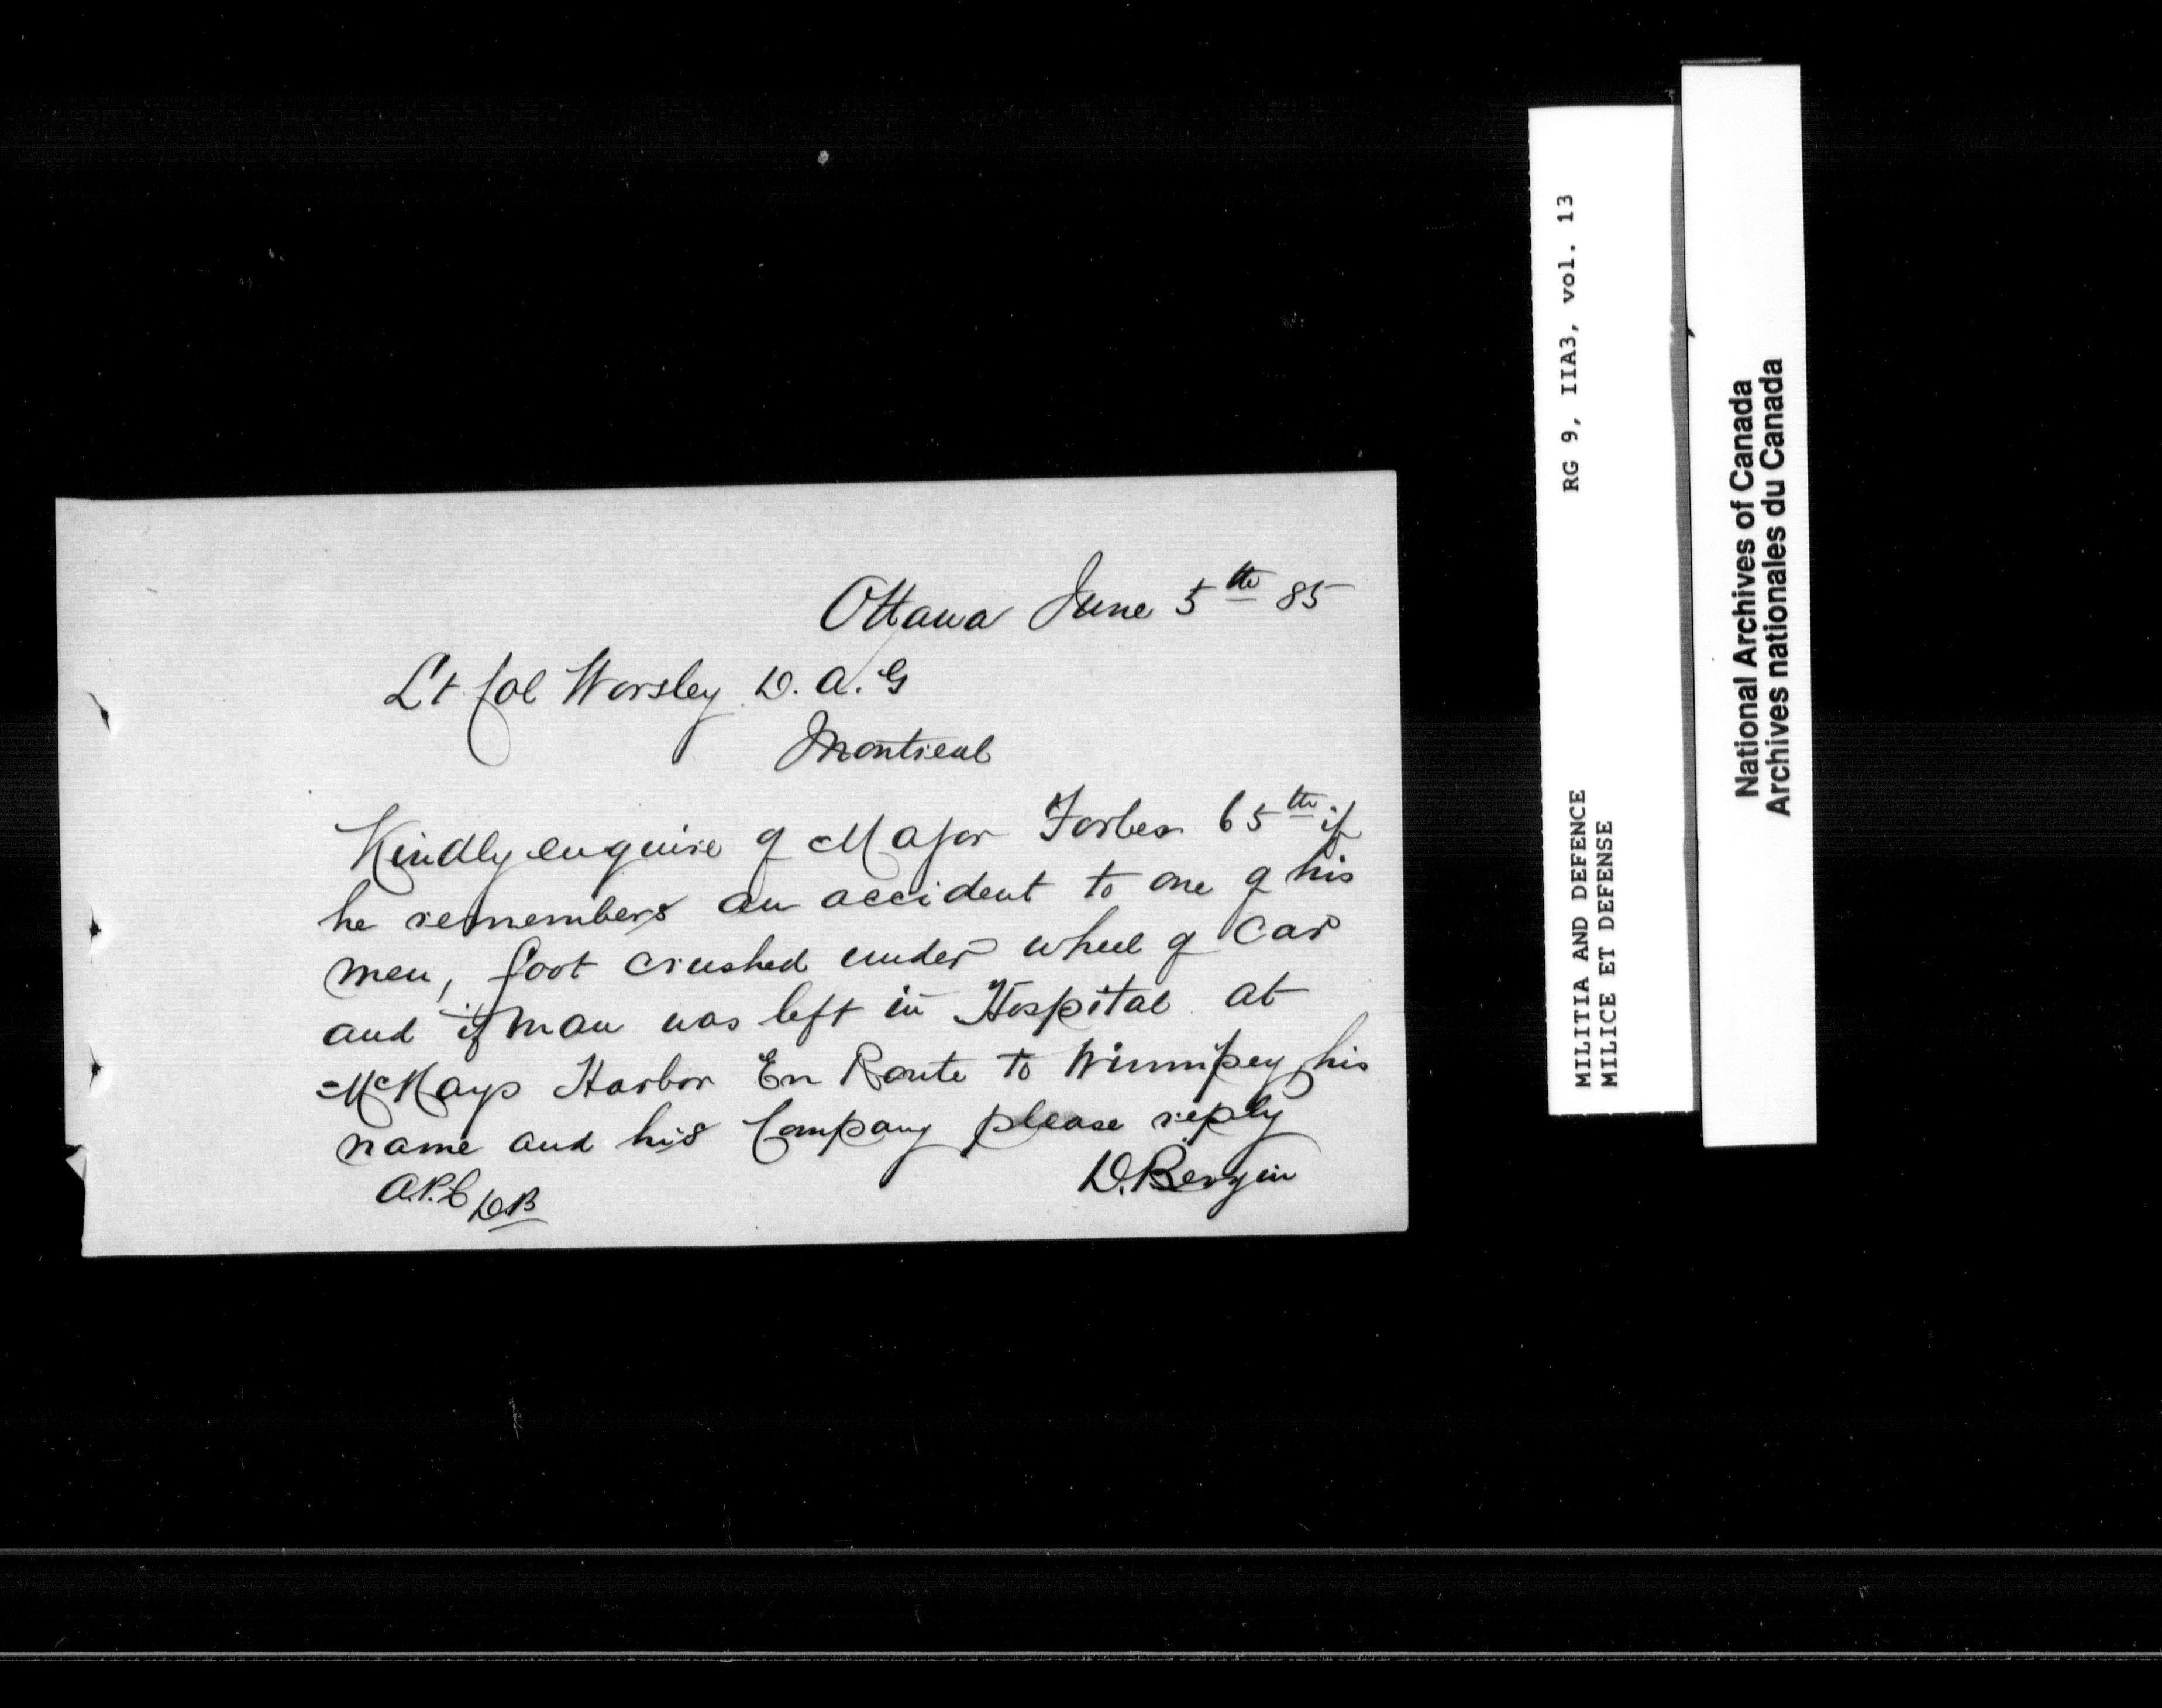 Ottawa June 5th 85
Lt Col Worsley D. A. G
Montreal
Kindly enquire of Major Forbes 65th if
he remembers an accident to one of his
men, foot crushed under wheel of Car
and if man was left in Hospital at
McKays Harbor En Route to Winnipeg, his
name and his Company please reply
D. Bergin
A.P.C D.B
RG 9, IIA3, vol. 13
MILITIA AND DEFENCE
MILICE ET DEFENSE
National Archives of Canada
Archives nationales du Canada